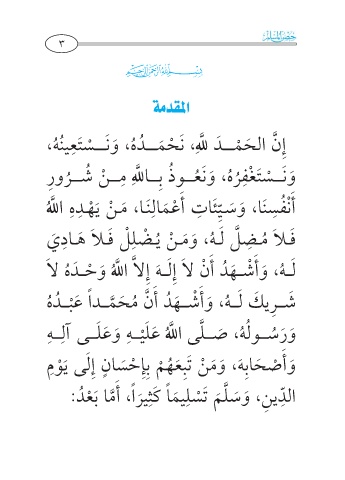 حصن المسلم
٣
بسم الله الرحمن الرحيم
المقدمة
إِنَّ الحَمْـدَ للَّهِ، نَحْمَـدُهُ، وَنَـسْتَعِينُهُ،
وَنَـسْتَغْفِرُهُ، وَنَعُـوذُ بِـاللَّهِ مِـنْ شُـرُورِ
أَنْفُسِنَا، وَسَيِّئَاتِ أَعْمَالِنَـا، مَـنْ يَهْدِهِ اللَّهُ
فَـلاَ مُضِلَّ لَـهُ، وَمَـنْ يُـضْلِلْ فَـلاَ هَادِيَ
لَـهُ، وَأَشْـهَدُ أَنْ لاَ إِلَـهَ إِلاَّ اللَّهُ وَحْـدَهُ لاَ
شَـرِيكَ لَـهُ، وَأَشْـهَدُ أَنَّ مُحَمَّـداً عَبْـدُهُ
وَرَسُـولُهُ، صَـلَّى اللَّهُ عَلَيْـهِ وَعَلَـى آلِـهِ
وَأَصْحَابِـهِ، وَمَـنْ تَبِعَهُمْ بِإِحْسَانٍ إِلَى يَوْمِ
الدِّينِ، وَسَلَّمَ تَسْلِيمَاً كَثِيرَاً، أَمَّا بَعْدُ: